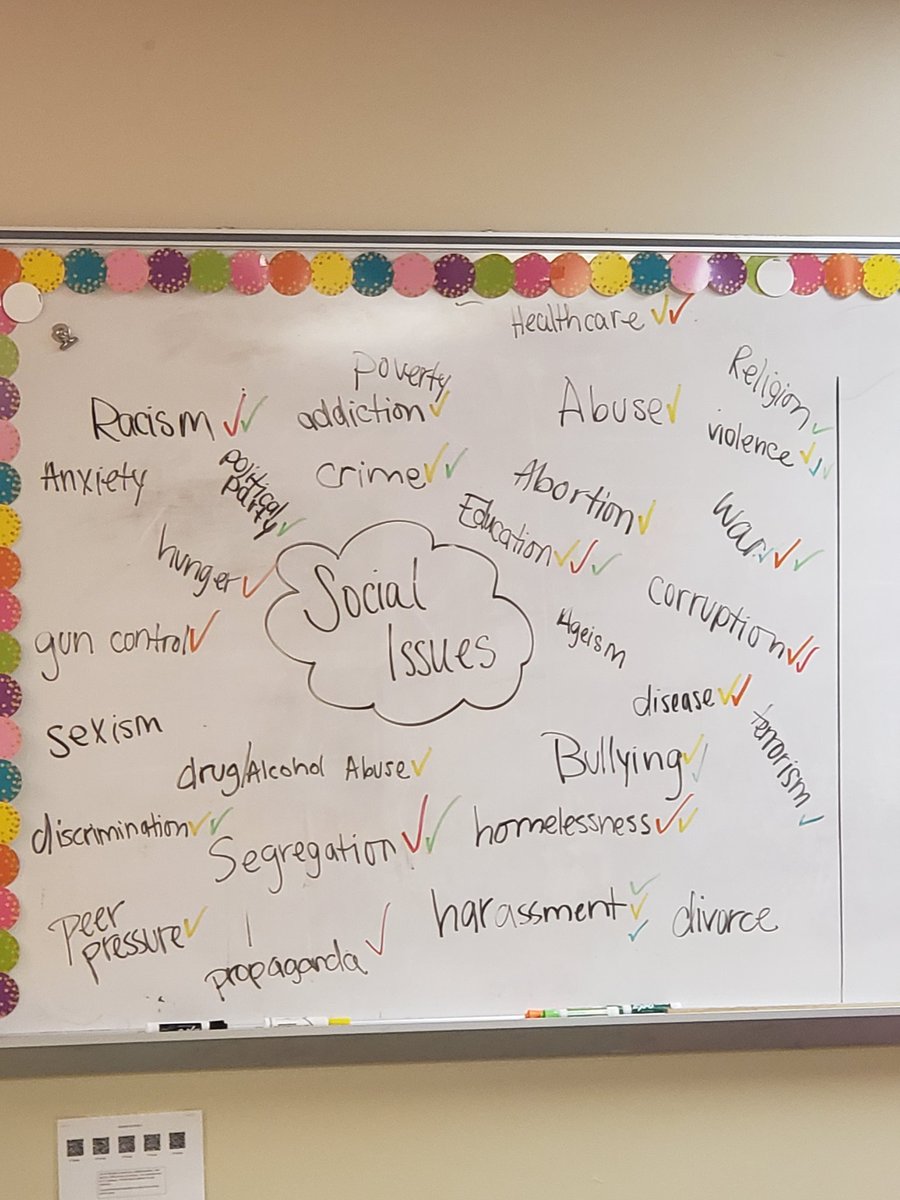 Healthcare
Poverty
Religion
Racism
addiction
Abuse
violence
Anxiety
political
party
crime
Abortion
Education
War
hunger
Social
Issues
gun control
Ageism
corruption
disease
sexism
terrorism
drug/Alcohol Abuse
Bullying
discrimination
Segregation
homelessness
Peer
pressure
propaganda
harassment
divorce